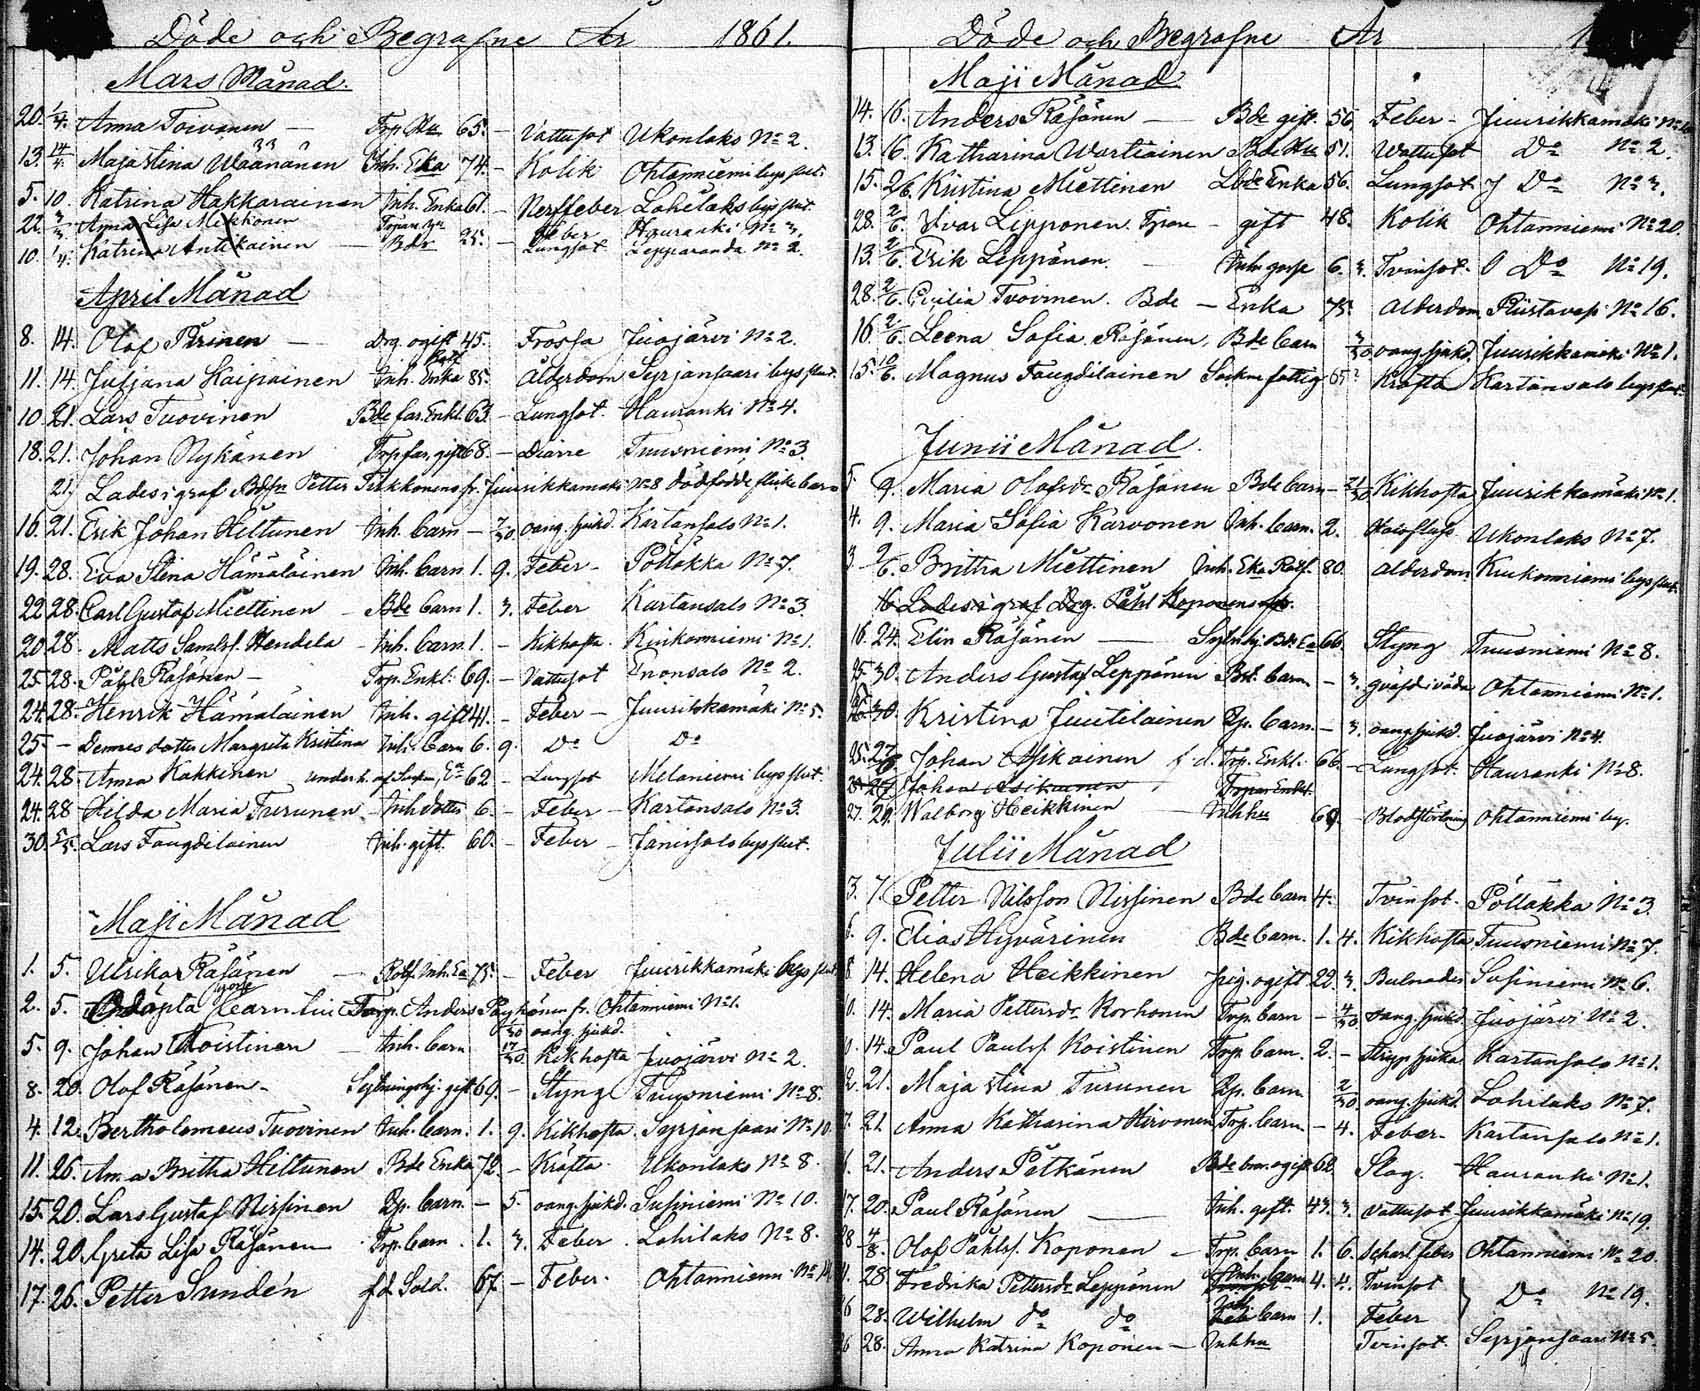 Döde och Begrafne År 1861.
Mars Månad.
20. 1/4. Anna Toivonen — Trp. Hu 65. – Vattusot Ukonlaks No 2.
13. 14/4. Maja Stina Väänänen Inh. Eka 74. – Kolik Ohtanniemi bys slut.
5. 10. Katrina Hakkarainen Inh. Enka 61. – Nerffeber Lohilaks bys slut.
22. Anna Lisa Mikkonen Feber Hauranki No 3.
10. 1/4. Katrina Antikainen — Bdr 25. – Lungsot. Lepparanda No 2.
April Månad
8. 14. Olof Pirinen — Drg. ogift 45. Frossa Juojärvi No 2.
11. 14. Juljana Kaipainen Inh. Enka 85. Ålderdom Syrjänsaari bys slut.
10. 21. Lars Tuovinen Bde far. Enkl. 63. – Lungsot. Hauranki No 4.
18. 21. Johan Nykänen Trp far. gift 68. – Diarre Tuusniemi No 3.
21. Lades i graf Bdsn Petter Tirkkonens fr. Juurikkamäki No 8 dödfödde flicke barn
16. 21. Erik Johan Hiltunen Inh. barn – 7/30. oang. sjukd. Kartansalo No 1.
19. 28. Eva Stina Hämäläinen Inh. barn 1. 9. Feber – Pölläkkä No 7.
22. 28. Carl Gustaf Miettinen – Bde barn 1. 3. Feber Kartansalo No 3.
20. 28. Matts Samlsf. Hendela – Inh. barn 1. – Kikhosta. Kiukonniemi No 1.
25. 28. Påhl Räsänen – Trp. Enkl. 69. – Vattusot Enonsalo No 2.
24. 28. Henrik Hämäläinen Inh. gift 41. – Feber – Juurikkamäki No 5.
25. – Dennes dotter Margreta Kristina Inh. barn 6. 9. Do Do
24. 28. Anna Kakkinen underh. af Sockn. Ea 62 – Lungsot Melaniemi bys slut.
24. 28 Hilda Maria Turunen – Inh dotter 6. – Feber – Kartansalo No 3.
30. 5/5. Lars Faugdilainen Inh. gift. 60. – Feber – Jänissalo bys slut.
Maji Månad
1. 5. Ulrika Räsänen — Rotf. Inh. Ea 75. – Feber Juurikkamäki bys slut
2. 5. Trp. Anders Pöyhönen fr. Ohtanniemi No 1.
1/30 oang. sjukd.
5. 9. Johan Koistinen — Inh. barn 17/30. Kikhosta Juojärvi No 2.
8. 20. Olof Räsänen – Sytningshj. gift 69. – Styng Tuusniemi No 8.
4. 12. Bertholomeus Tuovinen Inh. barn. 1. 9. Kikhosta. Syrjänsaari No 10.
11. 26. Anna Britha Hiltunen Bde Enka 72. – Kräfta. Ukonlaks No 8.
15. 20. Lars Gustaf Nissinen Bp. barn. – 5. oang. sjukd. Susiniemi No 10.
14. 20. Greta Lisa Räsänen Trp. barn. 1. 3. Feber. Lohilaks No 8.
17. 26. Petter Sundén fd. Sold. 67. – Feber. Ohtanniemi No 14.
Döde och Begrafne År
Maji Månad
14. 16. Anders Räsänen — Bde gift. 56. Feber – Juurikkamäki No
13. 16. Katharina Wartiainen Bde Hu 51. Wattusot Do No 2.
15. 26. Kristina Miettinen Lbde Enka 56. Lungsot Do No 3.
28. 2/6. Ivar Lipponen. Tjären – gift 48. Kolik Ohtanniemi No 20.
13. 2/6. Erik Leppänen. — Inh. gosse 6. 3. Tvinsot. Do No 19.
28. 2/6. Cecilia Tvoinen. Bde – Enka 75. Alderdom Riistavesi No 16.
16. 2/6. Leena Sofia Räsänen. Bde barn 3/30 oang. sjukd. Juurikkamäki No 1.
15. 10/6. Magnus Faugdilainen Sockne fattig 65. Kräfta Kartansalo bys slut.
Junii Månad.
5. 9. Maria Olofsdr Räsänen Bde barn – 21/30 Kikhosta Juurikkamäki No 1.
4. 9. Maria Sofia Karvonen Inh. barn. 2. Ukonlaks No 7.
3 9/6. Britha Miettinen Inh. Eka Rotf. 80. Alderdom Kiukonniemi bys slut.
16. Lades i graf Drg. Påhl Koponens
16. 24. Elin Räsänen — Sytnhj. Bde. Ea 66. Styng Tuusniemi No 8.
25. 30. Anders Gustaf Leppänen Bde. barn – 3. qväfd i våda Ohtanniemi No 1.
30. Kristina Juutilainen Bp. barn. – 3. oang. sjukd. Juojärvi No 4.
25. 27. Johan Asikainen f.d. Trp. Enkl. 66. – Lungsot. Hauranki No 8.
Johan Asikainen Torpar Enkl.
27. 29. Walborg Heikkinen – Inh hu 69. – Blodstörtning Ohtanniemi by.
Julii Månad
3. 7. Petter Nilsson Nissinen Bde barn 4. Tvinsot. Pölläkkä No 3.
9. Elias Hyvärinen Bde barn. 1. 4. Kikhosta Tuusniemi No 7.
8. 14. Helena Heikkinen pig. ogift 22. 3. Bulnader Susiniemi No 6.
14. Maria Pettersdr Korhonen Trp. barn – 4/30 oang. sjukd. Juojärvi No 2.
14. Paul Paulsf. Koistinen Trp. barn. 2. – Stryp sjuka Kartansalo No 1.
21. Maja Stina Turunen Bp. barn 2/30. oang. sjukd. Lohilaks No 7.
21. Anna Katharina Hirvonen Trp. barn – 4. Feber. Kartansalo No 1.
21. Anders Pitkänen Bde bror. ogift 62. Slag. Hauranki No 1.
17. 20. Paul Räsänen — Inh. gift. 43. 3. Vattusot Juurikkamäki No 19.
4/8. Olof Påhlsf. Koponen – Trp. barn 1. 6. Scharl. feber Ohtanniemi No 20.
28. Fredrika Pettersdr Leppänen Inh. barn 4. 4. Tvinsot } Do No 19.
28. Wilhelm do do Inh. barn 1. Feber
28. Anna Katrina Koponen – Inh hu Tvinsot. Syrjänsaari No 5.